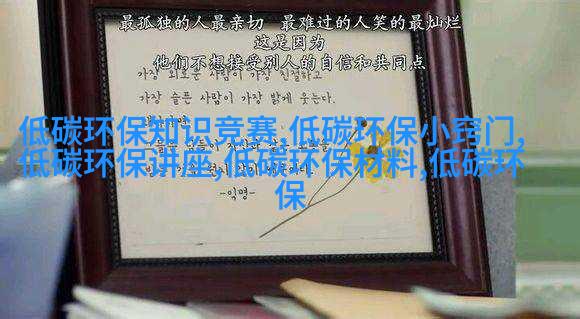 最孤独的人最亲切 最难过的人笑的最灿烂
这是因为
他们不想接受别人的自信和共同点
가장 외로운 사람이 가장 친절하고
가장 슬픈 사람이 가장 밝게 웃는다.
低碳环保知识竞赛,低碳环保小窍门,
低碳环保讲座,低碳环保材料,低碳环
保
-익명-